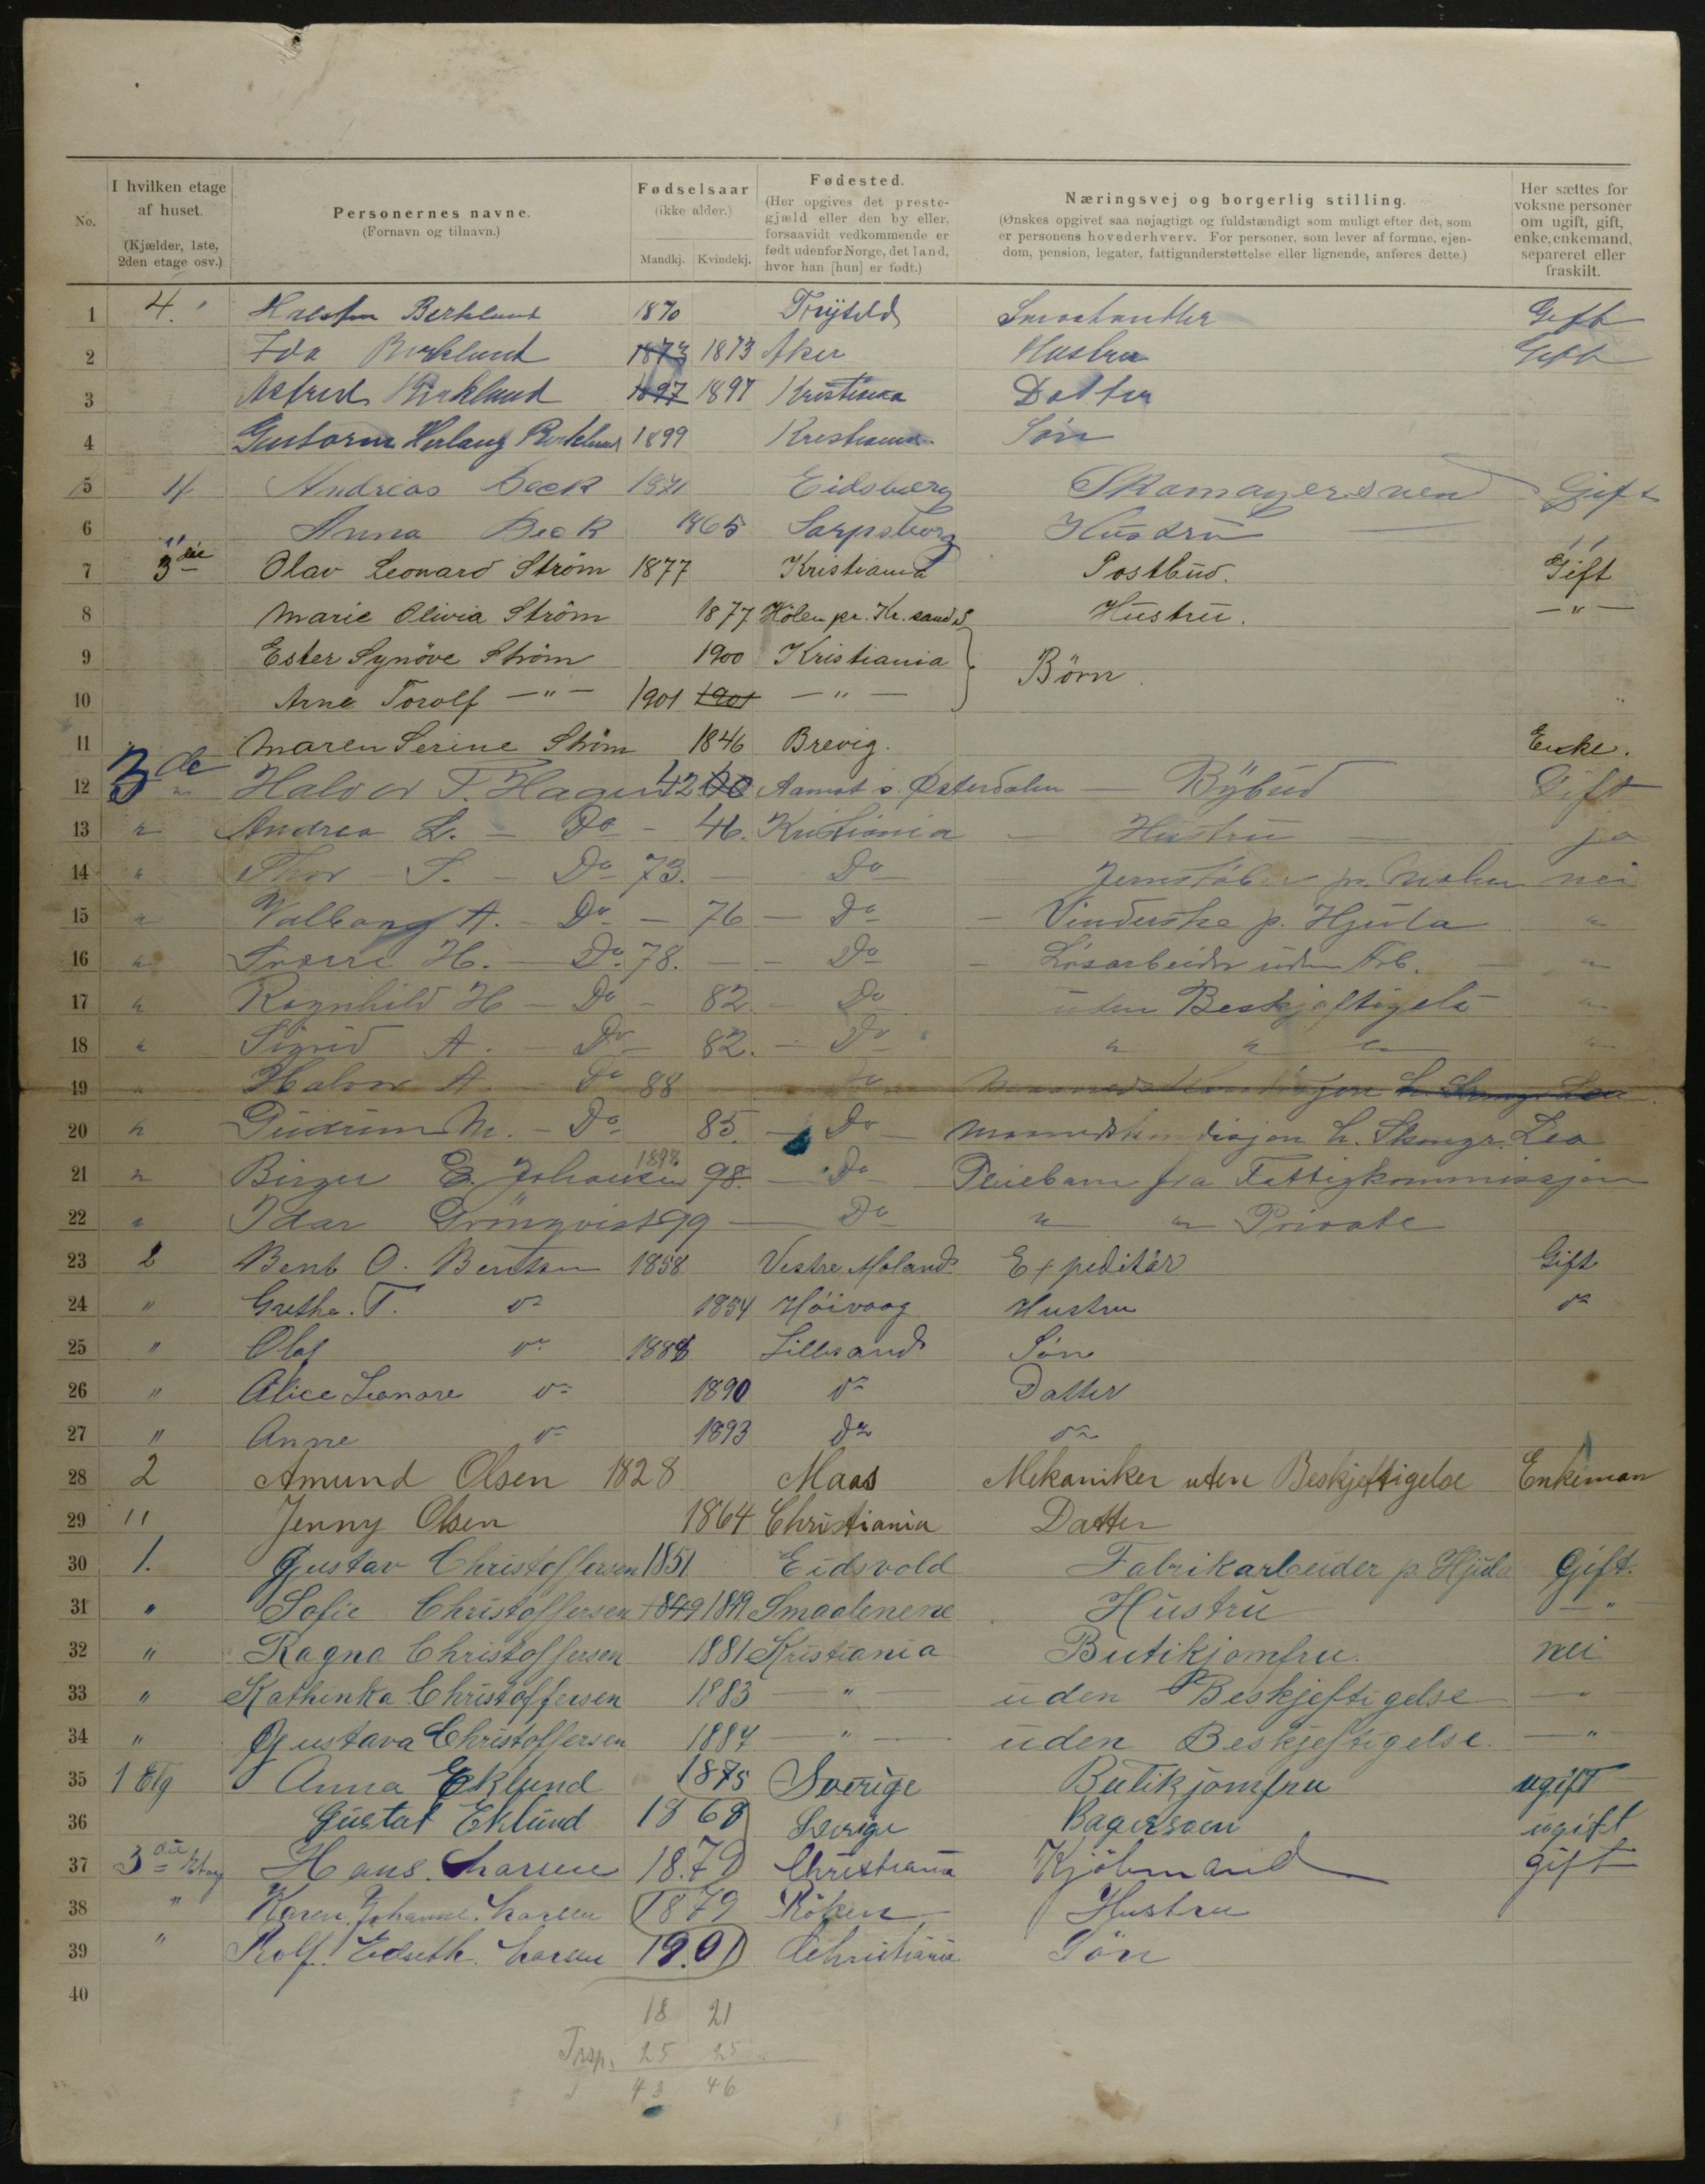 No.
I hvilken etage af huset. (Kjælder, 1ste, 2den etage osv.)
Personernes navne. (Fornavn og tilnavn.)
Fødselsaar (ikke alder.) Mandkj. Kvindekj.
Fødested. (Her opgives det prestegjæld eller den by eller, forsaavidt vedkommende er født udenfor Norge, det land, hvor han [hun] er født.)
Næringsvej og borgerlig stilling. (Ønskes opgivet saa nøjagtigt og fuldstændigt som muligt efter det, som er personens hovederhverv. For personer, som lever af formue, ejendom, pension, legater, fattigunderstøttelse eller lignende, anføres dette.)
Her sættes for voksne personer om ugift, gift, enke, enkemand, separeret eller fraskilt.
1 4. Berklund 1870 Gift
2 Ida Berklund 1873 1873 Aker Hustru Gift
3 Berklund 1897 1897 Kristiania Datter
4 Berklund 1899 Kristiania Søn
5 4 Andreas Beck 1871 Eidsberg Skomagersvend Gift
6 " Anna Beck 1865 Sarpsborg Husdru "
7 3die Olav Leonard Ström 1877 Kristiania Postbud. Gift
8 Marie Olivia Ström 1877 Hölen pr. Kr. sand Hustru. — " —
9 Ester Synöve Ström 1900 Kristiania Börn.
10 Arne Torolf — " — 1901 1901 — " —
11 Maren Serine Ström 1846 Brevig. Enke.
12 3de Halvor T. Hagen 42 Aamot i Østerdalen — Bybud Gift
13 " Andrea L. — Do — 46. Kristiania — Hustru — ja
14 " Thor S. — Do 73. — Do nei
15 " Valborg A. — Do — 76 — Do — Vinderske p. Hjula "
16 " Sverre H. — Do. 78. — Do — Løsarbeider uden Arb. — "
17 " Ragnhild H — Do — 82 — Do uden Beskjæftigelse "
18 " Sigrid A. — Do — 82. — Do " " " "
19 " Halvor A. — Do 88 Do
20 " Gudrun M. — Do 85. — Do —
21 " Birger E. Johansen 1898 98. — Do — Pleiebarn fra Fattigkommissjon
22 " Idar Grönqvist 99 — Do " " Private
23 2 Bent O. Bentsen 1858 Vestre Moland Expeditör Gift
24 " Grethe. T. do 1854 Höivaag Hustru do
25 " Olaf do 1888 Lillesand Søn
26 " Alice Leonore do 1890 do Datter
27 " Anne do 1893 do do
28 2 Amund Olsen 1828 Maas Mekaniker uten Beskjeftigelse Enkeman
29 " Jenny Olsen 1864 Christiania Datter
30 1. Gustav Christoffersen 1851 Eidsvold Fabrikarbeider p. Hjula Gift.
31 " Sofie Christoffersen 1849 1849 Smaalenene Hustru — " —
32 " Ragna Christoffersen 1881 Kristiania Butikjomfru. nei
33 " Kathinka Christoffersen 1883 — " — uden Beskjeftigelse — " —
34 " Gustava Christoffersen 1884 — " — uden Beskjeftigelse. — " —
35 1 Etg Anna Eklund 1875 Sverige Butikjomfru ugift
36 Gustaf Eklund 1868 Sverige Bagersven ugift
37 3die Etag Hans. Larsen 18.79 Christiania Kjöbmand gift
38 " Karen. Johanne. Larsen 1879 Röken Hustru
39 " Rolf. Larsen 19.01 Christiania Sön
40
18 21
Trsp. 25 25
43 46